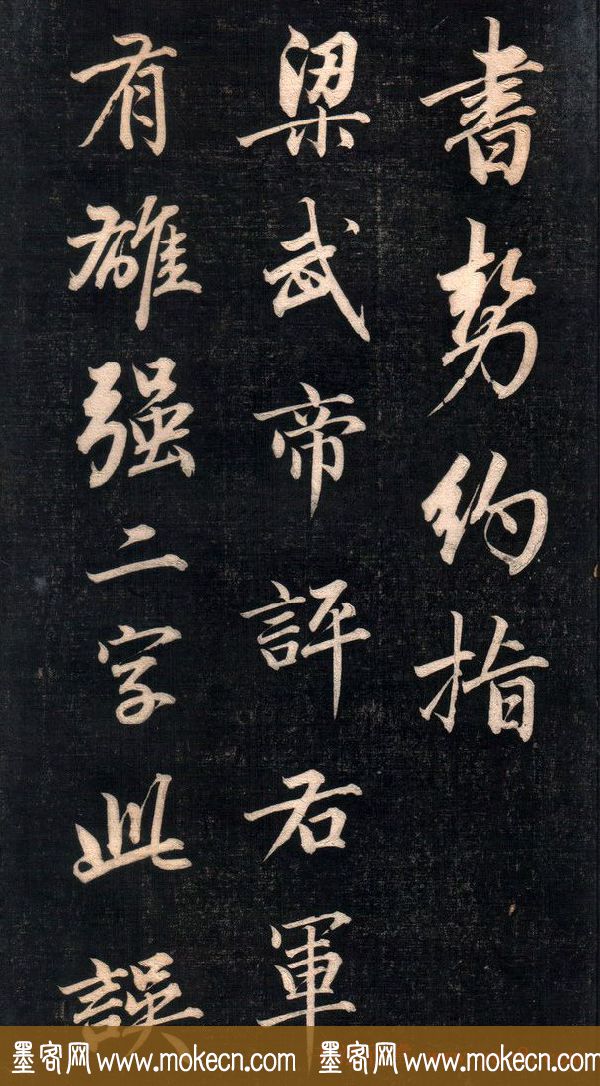 書勢約指
梁武帝評右軍
有雄强二字此誤
墨客网 www.mokecn.com 墨客网 www.mokecn.com